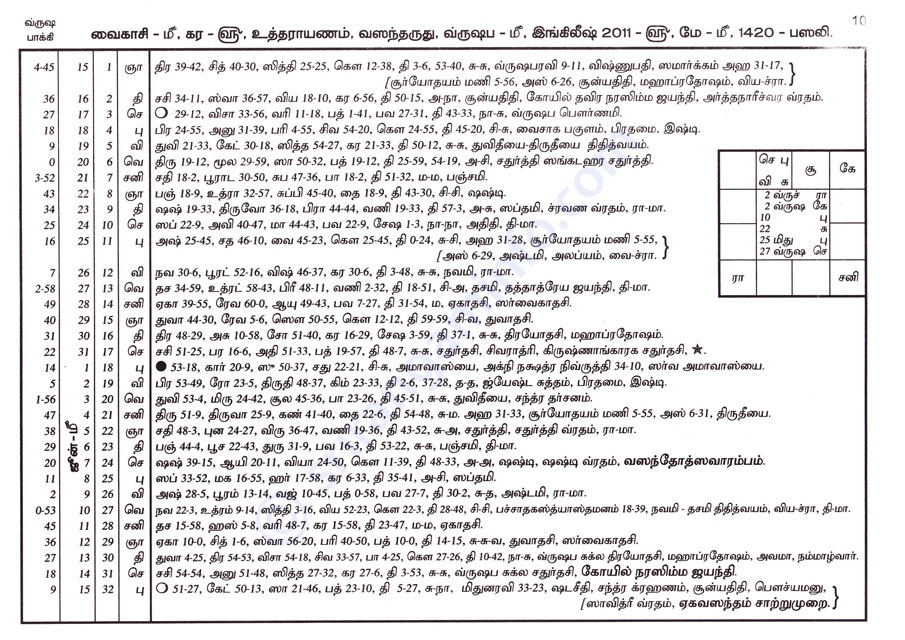 வ்ருஷ பாக்கி
10
வைகாசி - மீ, கர - ௵, உத்தராயணம், வஸந்தருது, வ்ருஷப - மீ, இங்கிலீஷ் 2011 - ௵, மே - மீ, 1420 - பஸலி.
4-45 15 1 ஞா திர 39-42, சித் 40-30, ஸித்தி 25-25, கௌ 12-38, தி 3-6, 53-40, சு-சு, வ்ருஷபரவி 9-11, விஷ்ணுபதி, ஸமார்க்கம் அஹ 31-17,
[சூர்யோதயம் மணி 5-56, அஸ் 6-26, சூன்யதிதி, மஹாப்ரதோஷம், விய-ச்ரா.
36 16 2 தி சசி 34-11, ஸ்வா 36-57, விய 18-10, கர 6-56, தி 50-15, அ-நா, சூன்யதிதி, கோயில் தவிர நரஸிம்ம ஜயந்தி, அர்த்தநாரீச்வர வ்ரதம்.
27 17 3 செ 〇 29-12, விசா 33-56, வரி 11-18, பத் 1-41, பவ 27-31, தி 43-33, நா-சு, வ்ருஷப பௌர்ணமி.
18 18 4 பு பிர 24-55, அனு 31-39, பரி 4-55, சிவ 54-20, கௌ 24-55, தி 45-20, சி-சு, வைசாக பகுளம், பிரதமை, இஷ்டி.
9 19 5 வி துவி 21-33, கேட் 30-18, ஸித்த 54-27, கர 21-33, தி 50-12, சு-சு, துவிதீயை-திருதீயை திதித்வயம்.
0 20 6 வெ திரு 19-12, மூல 29-59, ஸா 50-32, பத் 19-12, தி 25-59, 54-19, அ-சி, சதுர்த்தி ஸங்கடஹர சதுர்த்தி.
3-52 21 7 சனி சதி 18-2, பூராட 30-50, சுப 47-36, பா 18-2, தி 51-32, ம-ம, பஞ்சமி.
43 22 8 ஞா பஞ் 18-9, உத்ரா 32-57, சுப்பி 45-40, தை 18-9, தி 43-30, சி-சி, ஷஷ்டி.
34 23 9 தி ஷஷ் 19-33, திருவோ 36-18, பிரா 44-44, வணி 19-33, தி 57-3, அ-சு, ஸப்தமி, ச்ரவண வ்ரதம், ரா-மா.
25 24 10 செ ஸப் 22-9, அவி 40-47, மா 44-43, பவ 22-9, சேஷ 1-3, நா-நா, அதிதி, தி-மா.
16 25 11 பு அஷ் 25-45, சத 46-10, வை 45-23, கௌ 25-45, தி 0-24, சு-சி, அஹ 31-28, சூர்யோதயம் மணி 5-55,
[அஸ் 6-29, அஷ்டமி, அலப்யம், வை-ச்ரா.
7 26 12 வி நவ 30-6, பூரட் 52-16, விஷ் 46-37, கர 30-6, தி 3-48, சு-சு, நவமி, ரா-மா.
2-58 27 13 வெ தச 34-59, உத்ரட் 58-43, பிரீ 48-11, வணி 2-32, தி 18-51, சி-அ, தசமி, தத்தாத்ரேய ஜயந்தி, தி-மா.
49 28 14 சனி ஏகா 39-55, ரேவ 60-0, ஆயு 49-43, பவ 7-27, தி 31-54, ம, ஏகாதசி, ஸர்வைகாதசி.
40 29 15 ஞா துவா 44-30, ரேவ 5-6, ஸௌ 50-55, கௌ 12-12, தி 59-59, சி-வ, துவாதசி.
31 30 16 தி திர 48-29, அசு 10-58, சோ 51-40, கர 16-29, சேஷ 3-59, தி 37-1, சு-சு, திரயோதசி, மஹாப்ரதோஷம்.
22 31 17 செ சசி 51-25, பர 16-6, அதி 51-33, பத் 19-57, தி 48-7, சு-சு, சதுர்தசி, சிவராத்ரி, கிருஷ்ணாங்காரக சதுர்தசி, ★.
14 1 18 பு ● 53-18, கார் 20-9, ஸு 50-37, சது 22-21, சி-சு, அமாவாஸ்யை, அக்நி நக்ஷத்ர நிவ்ருத்தி 34-10, ஸர்வ அமாவாஸ்யை.
5 2 19 வி பிர 53-49, ரோ 23-5, திருதி 48-37, கிம் 23-33, தி 2-6, 37-28, த-த, ஜ்யேஷ்ட சுத்தம், பிரதமை, இஷ்டி.
1-56 3 20 வெ துவி 53-4, மிரு 24-42, சூல 45-36, பா 23-26, தி 45-51, சு-சு, துவிதீயை, சந்த்ர தர்சனம்.
47 4 21 சனி திரு 51-9, திருவா 25-9, கண் 41-40, தை 22-6, தி 54-48, சு-ம. அஹ 31-33, சூர்யோதயம் மணி 5-55, அஸ் 6-31, திருதீயை.
ஜூன்-மீ
38 5 22 ஞா சதி 48-3, புன 24-27, விரு 36-47, வணி 19-36, தி 43-52, சு-அ, சதுர்த்தி, சதுர்த்தி வ்ரதம், ரா-மா.
29 6 23 தி பஞ் 44-4, பூச 22-43, துரு 31-9, பவ 16-3, தி 53-22, சு-சு, பஞ்சமி, தி-மா.
20 7 24 செ ஷஷ் 39-15, ஆயி 20-11, வியா 24-50, கௌ 11-39, தி 48-33, அ-அ, ஷஷ்டி, ஷஷ்டி வ்ரதம், வஸந்தோத்ஸவாரம்பம்.
11 8 25 பு ஸப் 33-52, மக 16-55, ஹர் 17-58, கர 6-33, தி 35-41, அ-சி, ஸப்தமி.
2 9 26 வி அஷ் 28-5, பூரம் 13-14, வஜ் 10-45, பத் 0-58, பவ 27-7, தி 30-2, சு-த, அஷ்டமி, ரா-மா.
0-53 10 27 வெ நவ 22-3, உத்ரம் 9-14, ஸித்தி 3-16, விய 52-23, கௌ 22-3, தி 28-48, சி-சி, பச்சாதகஸ்த்யாஸ்தமனம் 18-39, நவமி - தசமி திதித்வயம், விய-ச்ரா, தி-மா.
45 11 28 சனி தச 15-58, ஹஸ் 5-8, வரி 48-7, கர 15-58, தி 23-47, ம-ம, ஏகாதசி.
36 12 29 ஞா ஏகா 10-0, சித் 1-6, ஸ்வா 56-20, பரி 40-50, பத் 10-0, தி 14-15, சு-சு-வ, துவாதசி, ஸர்வைகாதசி.
27 13 30 தி துவா 4-25, திர 54-53, விசா 54-18, சிவ 33-57, பா 4-25, கௌ 27-26, தி 10-42, நா-சு, வ்ருஷப சுக்ல திரயோதசி, மஹாப்ரதோஷம், அவமா, நம்மாழ்வார்.
18 14 31 செ சசி 54-54, அனு 51-48, ஸித்த 27-32, கர 27-6, தி 3-53, சு-சு, வ்ருஷப சுக்ல சதுர்தசி, கோயில் நரஸிம்ம ஜயந்தி.
9 15 32 பு 〇 51-27, கேட் 50-13, ஸா 21-46, பத் 23-10, தி 5-27, சு-நா, மிதுனரவி 33-23, ஷடசீதி, சந்த்ர க்ரஹணம், சூன்யதிதி, பௌச்யமனு,
[ஸாவித்ரீ வ்ரதம், ஏகவஸந்தம் சாற்றுமுறை.
செ பு
வி சு
சூ
கே
2 வ்ருச் ரா
2 வ்ருஷ கே
10 பு
22 சு
25 மிது பு
27 வ்ருஷ செ
ரா
சனி